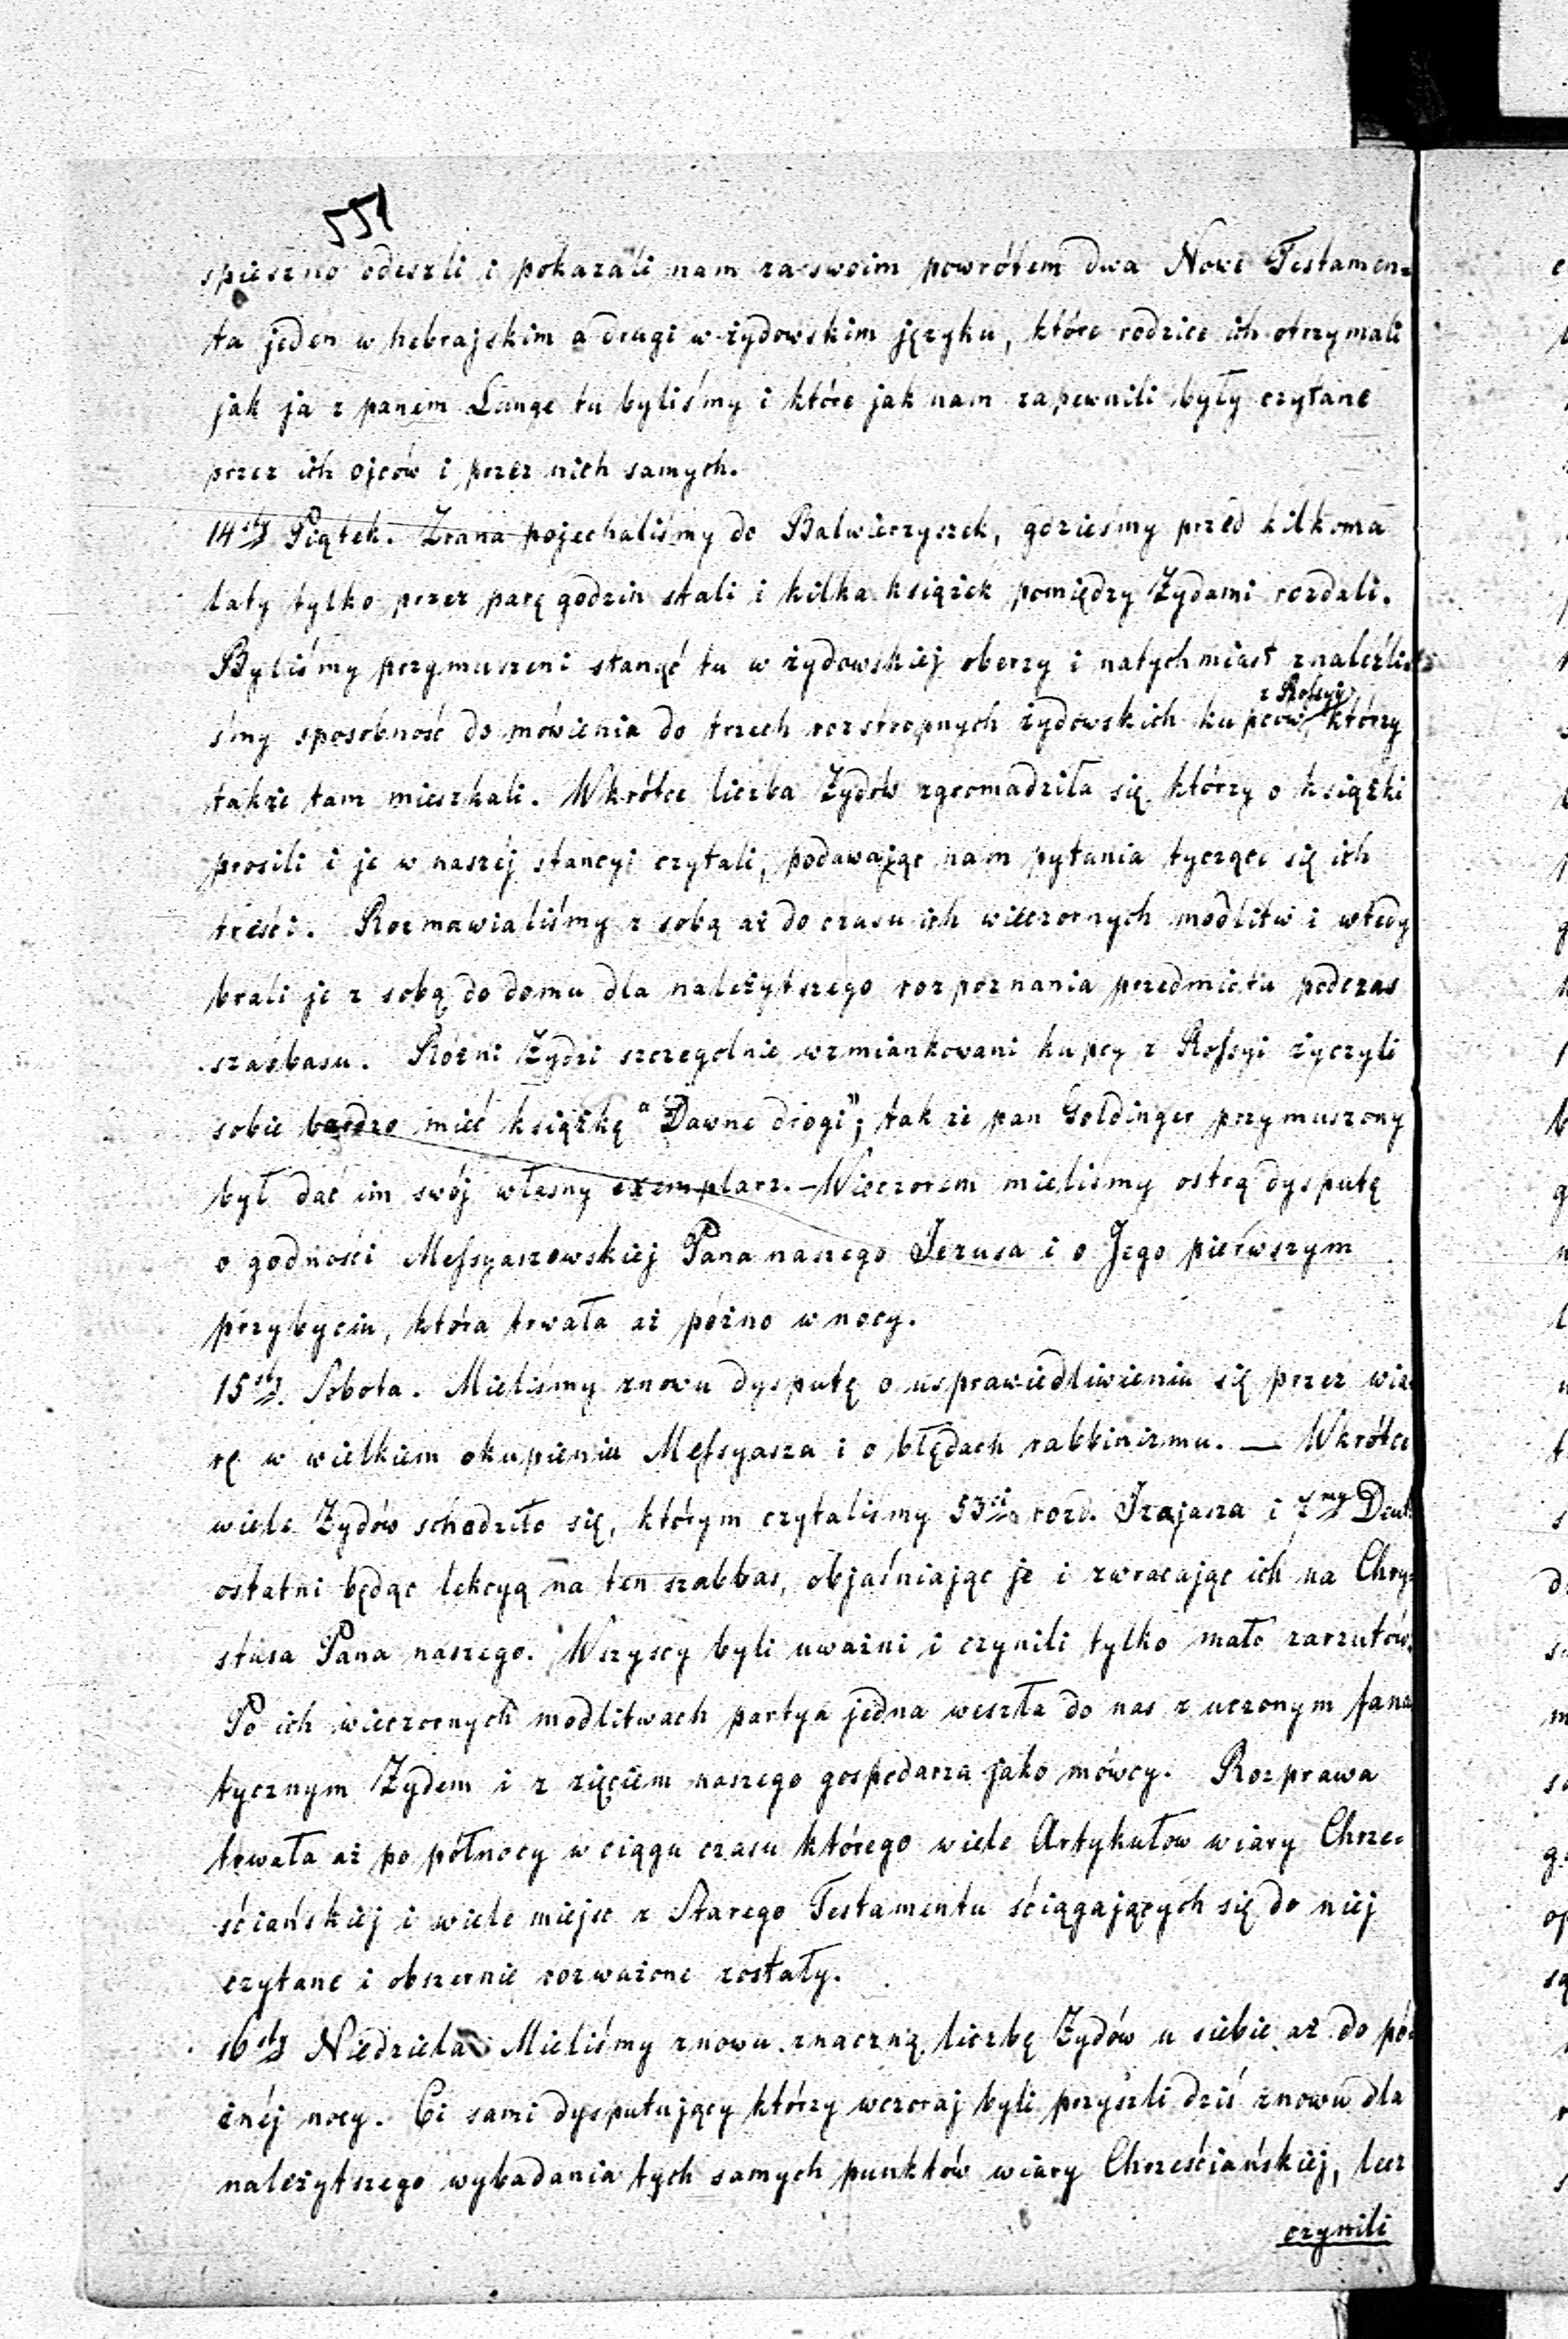 551
spieszno odeszli i pokazali nam za swoim powrótem dwa Nowe Testamen=
ta jeden w hebrajskim a drugi w żydowskim języku, które rodzice ich otrzymali
jak ja z panem Lange tu byliśmy i które jak nam zapewnili były czytane
przez ich ojców i przez nich samych.
14sty Piątek. Zrana pojechaliśmy do Balwierzyszek, gdzieśmy przed kilkoma
laty tylko przez parę godzin stali i kilka książek pomiędzy Żydami rozdali.
Byliśmy przymuszeni stanąć tu w żydowskiej oberzy i natychmiast znaleźli=
z Rossyi
śmy sposobność do mówienia do trzech rozstropnych żydowskich kupców którzy
także tam mieszkali. Wkrótce liczba Żydów zgromadziła się którzy o książki
prosili i je w naszéj stancyi czytali, podawając nam pytania tyczące się ich
treści. Rozmawialiśmy z sobą aż do czasu ich wieczornych modlitw i wtedy
brali je z sobą do domu dla należytszego rozpoznania przedmiotu podczas
szasbasu. Różni Żydzi szczególnie wzmiankowani kupcy z Rossyi życzyli
sobie bardzo mieć książkę "Dawne drogi"; tak że pan Goldinger przymuszony
był dać im swój własny exemplarz. — Wieczorem mieliśmy ostrą dysputę
o godności Messyaszowskiej Pana naszego Jezusa i o Jego pierwszym
przybyciu, która trwała aż pożno w nocy.
15sty. Sobota. Mieliśmy znowu dysputę o usprawiedliwieniu się przez wia
rę w wielkiem okupieniu Messyasza i o błędach rabbinizmu. — Wkrótce
wiele Żydów schodziło się, którym czytaliśmy 53ci rozd. Izajasza i 7my Deut
ostatni będąc lekcyą na ten szabbas, objaśniając je i zwracając ich na Chry=
stusa Pana naszego. Wszyscy byli uważni i czynili tylko mało zarzutów.
Po ich wieczornych modlitwach partya jedna weszła do nas z uczonym fana
tycznym Żydem i z zięciem naszego gospodarza jako mówcy. Rozprawa
trwała aż po północy w ciągu czasu którego wiele Artykułow wiary Chrze=
ściańskiej i wiele miejsc z Starego Testamentu ściągających się do niej
czytane i obszernie rozważone zostały.
16sty Niedziela. Mieliśmy znowu znaczną liczbę Żydów u siebie aż do pó
źnéj nocy. Ci sami dysputujący którzy wczoraj byli przyszli dziś znowu dla
należytszego wybadania tych samych punktów wiary Chrześciańskiéj, lecz
czynili